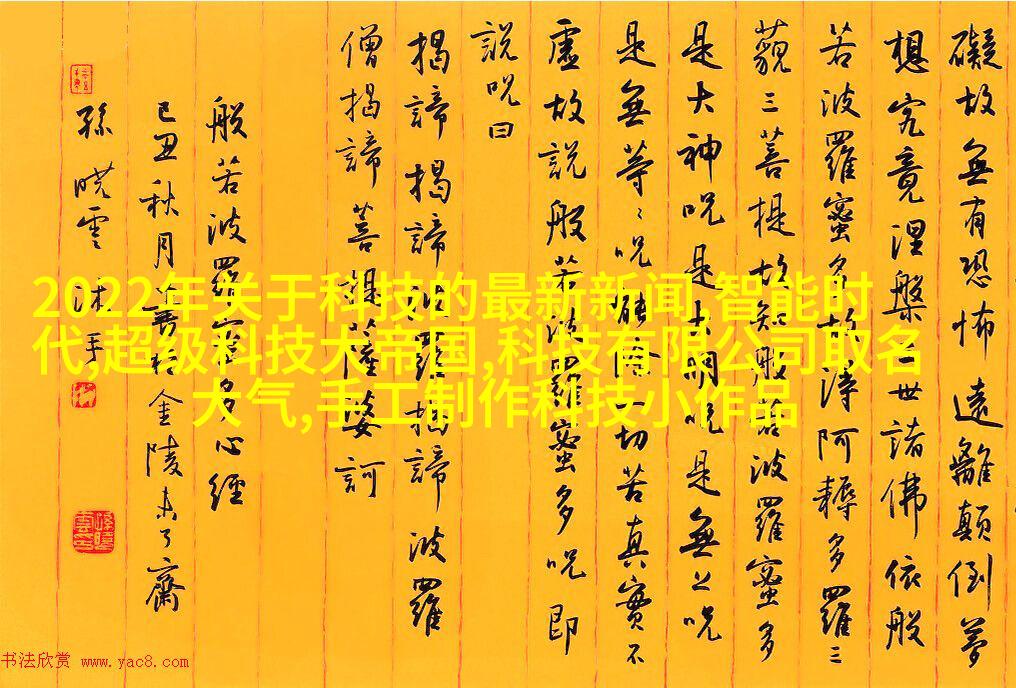 礙故無有恐怖遠離顛倒夢
想究竟涅槃三世諸佛依般
若波羅蜜多故得阿耨多羅三
藐三菩提故知般若波羅蜜多
是大神呪是大明呪是無上呪
是無等〻呪能除一切苦真實不
虛故說般若波羅蜜多呪即
說呪曰
揭諦揭諦波羅揭諦波羅
僧揭諦菩提薩婆訶
般若波羅蜜多心經
己丑秋月書於金陵未了齋
孫曉雲沐手
2022年关于科技的最新新闻,智能时
代,超级科技大帝国,科技有限公司取名
大气,手工制作科技小作品
书法欣赏 www.yac8.com